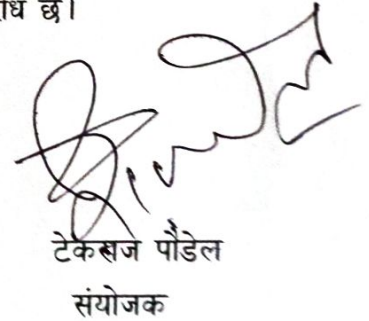 ोध छ।
टेकराज पौडेल
संयोजक